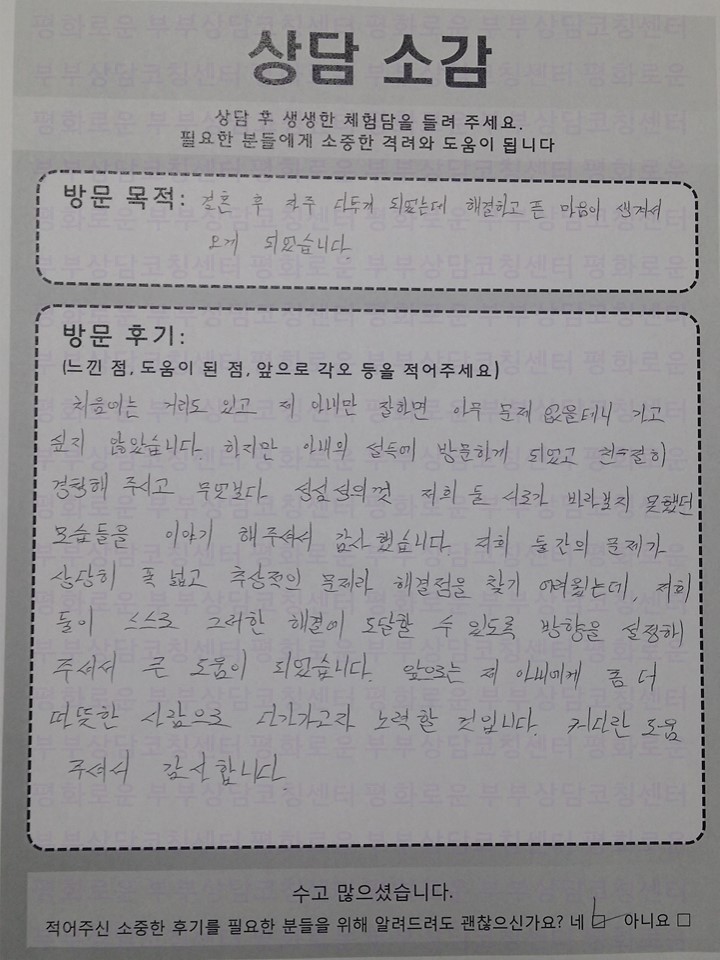 상담 소감
상담 후 생생한 체험담을 들려 주세요.
필요한 분들에게 소중한 격려와 도움이 됩니다
방문 목적: 결혼 후 자주 다투게 되었는데 해결하고픈 마음이 생겨서
오게 되었습니다.
방문 후기:
(느낀 점, 도움이 된 점, 앞으로 각오 등을 적어주세요)
처음에는 거리도 있고 제 아내만 잘하면 아무 문제 없을테니 가고
싶지 않았습니다. 하지만 아내의 설득에 방문하게 되었고 친절히
경청해 주시고 무엇보다 성심성의껏 저희 둘 서로가 바라보지 못했던
모습들을 이야기 해주셔서 감사했습니다. 저희 둘간의 문제가
상당히 폭 넓고 추상적인 문제라 해결점을 찾기 어려웠는데, 저희
둘이 스스로 그러한 해결에 도달할 수 있도록 방향을 설정해
주셔서 큰 도움이 되었습니다. 앞으로는 제 아내에게 좀 더
따뜻한 사람으로 다가가고자 노력할 것입니다. 커다란 도움
주셔서 감사합니다.
수고 많으셨습니다.
적어주신 소중한 후기를 필요한 분들을 위해 알려드려도 괜찮으신가요? 네 □ 아니요 □